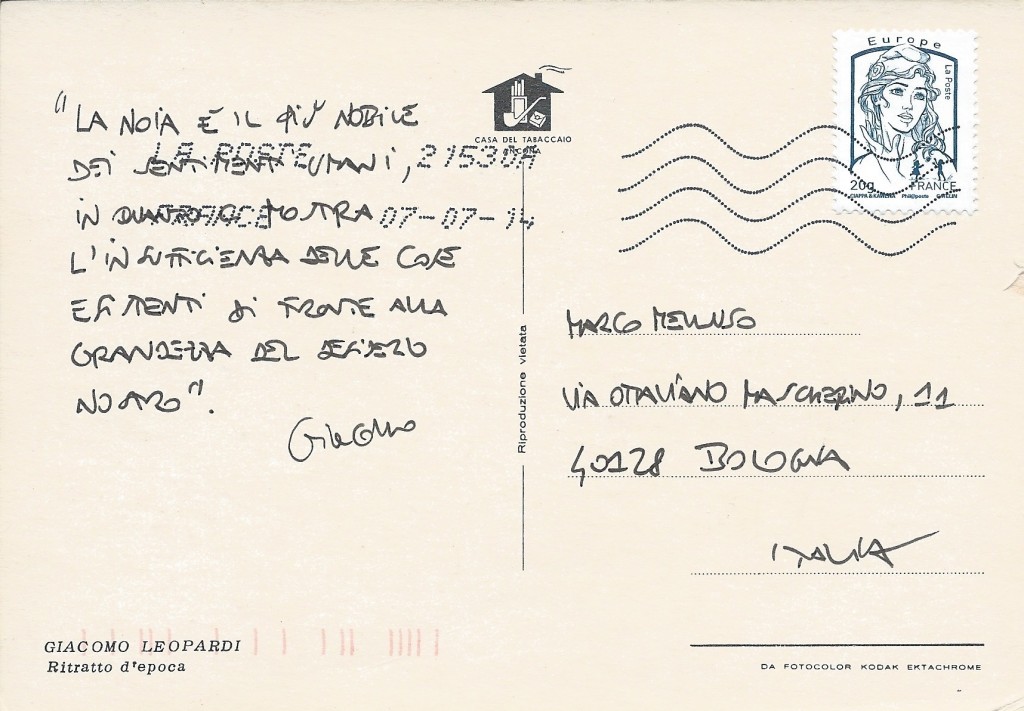 "LA NOIA È IL PIÙ NOBILE
DEI SENTIMENTI UMANI,
IN QUANTO CI MOSTRA
L'INSUFFICIENZA DELLE COSE
ESISTENTI DI FRONTE ALLA
GRANDEZZA DEL DESIDERIO
NOSTRO".
Giacomo
GIACOMO LEOPARDI
Ritratto d'epoca
CASA DEL TABACCAIO
ANCONA
LA POSTE 21530A
FRANCE 07-07-14
Riproduzione vietata
Europe
La Poste
20g FRANCE
CIAPPA & KAWENA Phil@poste
MARCO MELLUSO
VIA OTTAVIANO MASCHERINO, 11
40128 BOLOGNA
ITALIA
DA FOTOCOLOR KODAK EKTACHROME